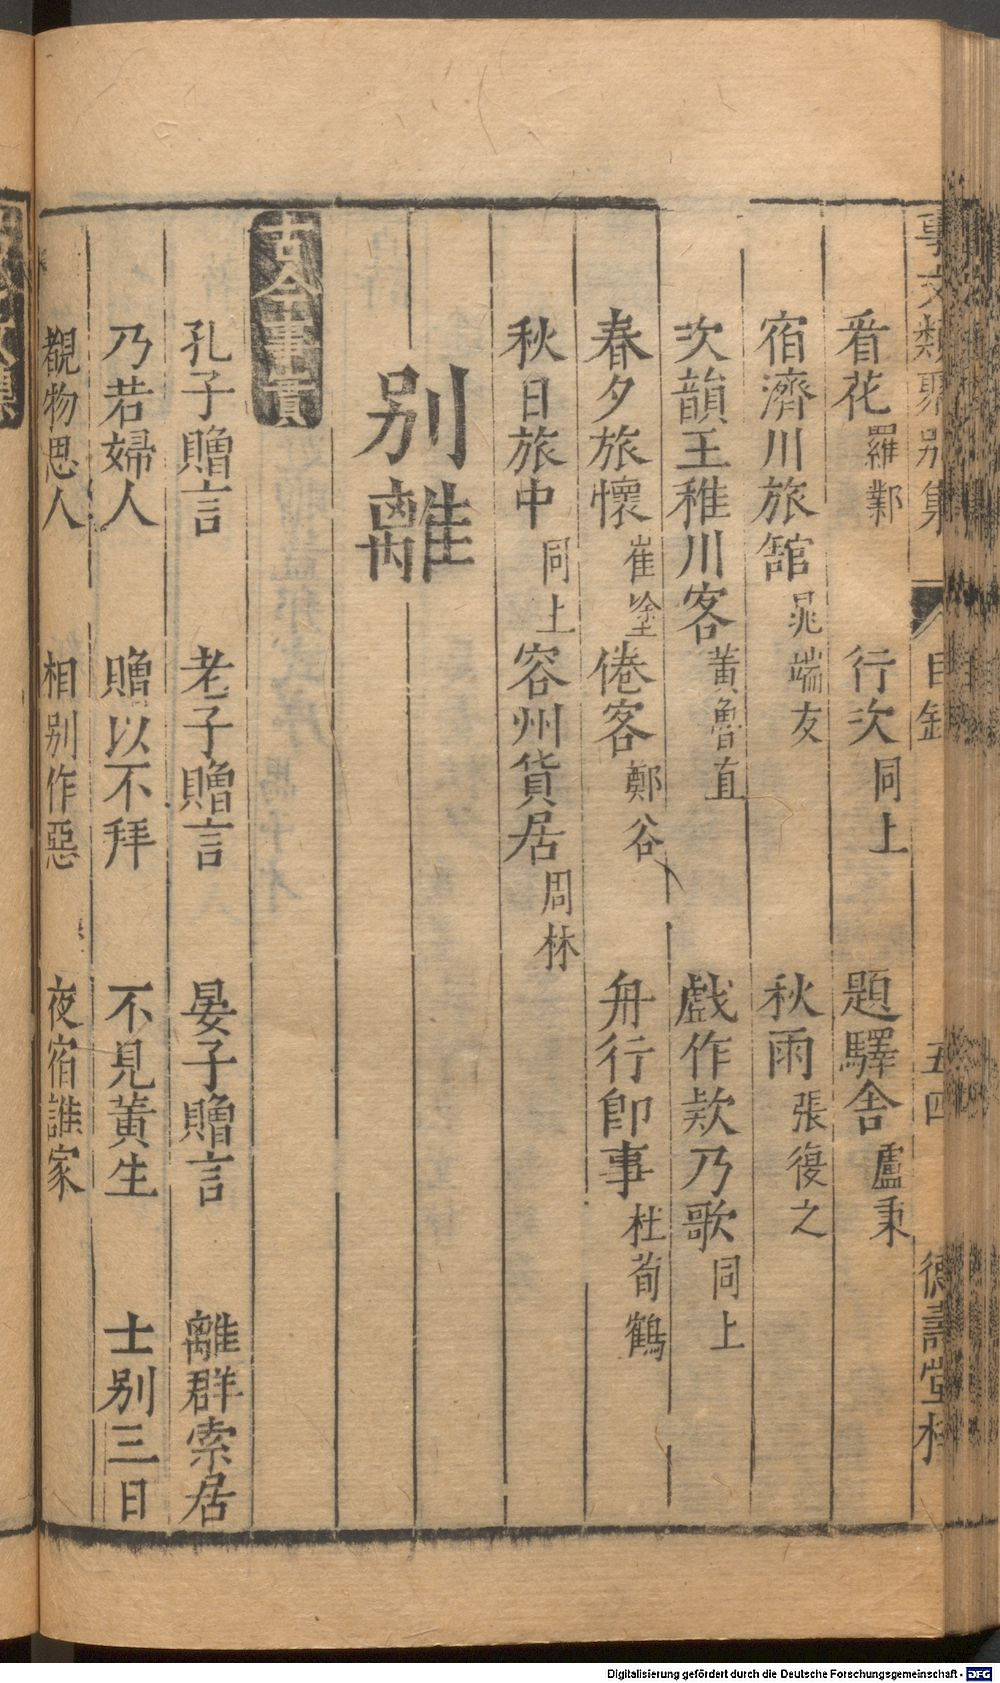 事文類聚别集 目録 五四 德壽堂梓
看花羅鄴 行次同上 題驛舍盧秉
宿濟川旅舘晁端友 秋雨張復之
次韻王稚川客黃魯直 戲作欵乃歌同上
春夕旅懷崔塗 倦客鄭谷 舟行卽事杜荀鶴
秋日旅中同上 容州貨居周林
别離
古今事實
孔子贈言 老子贈言 晏子贈言 離群索居
乃若婦人 贈以不拜 不見黃生 士别三日
覩物思人 相别作惡 夜宿誰家
Digitalisierung gefördert durch die Deutsche Forschungsgemeinschaft - DFG